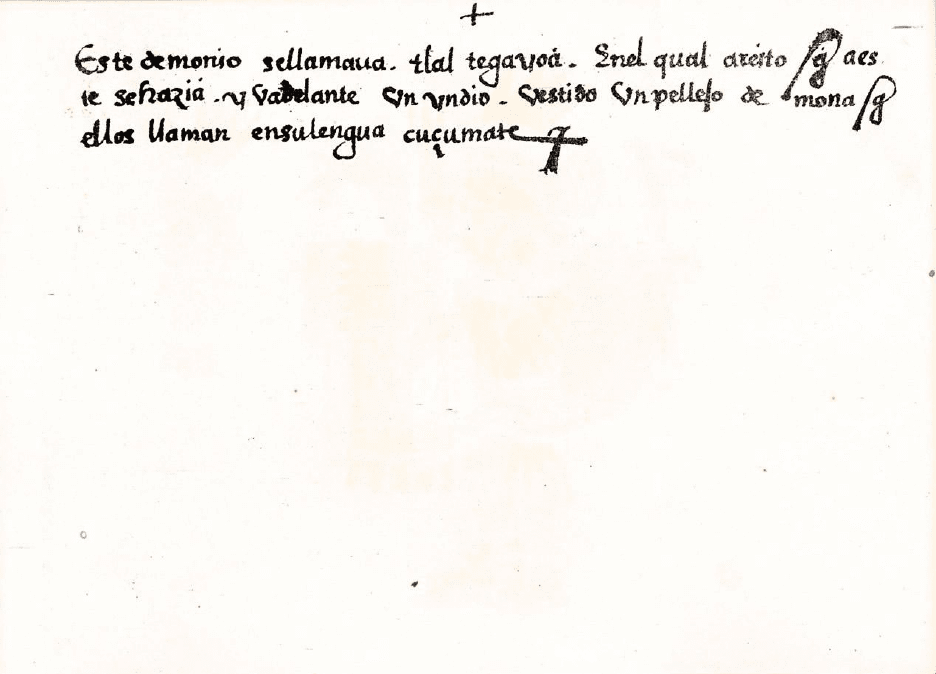 +
Este demonio sellamava. tlal tegayoá. Enel qual areito q̃ aes
te sehazia. y vadelante un yndio. vestido un pellejo de mona q̃
ellos llaman ensulengua cuçumate